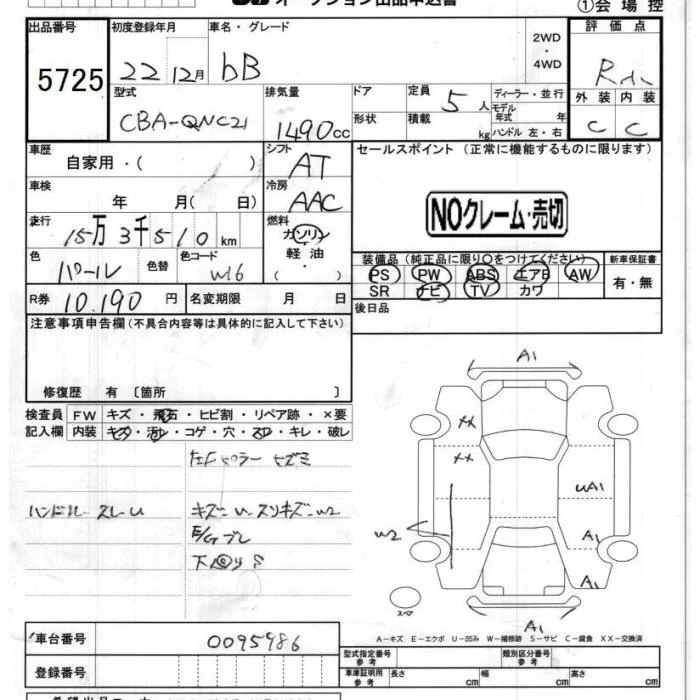 オークション出品申込書
①会場控
出品番号 5725
初度登録年月 22 12月
車名・グレード bB
2WD・4WD
評価点
型式 CBA-QNC21
排気量 1490cc
ドア
形状
定員 5人
積載 kg
ディーラー・並行
モデル年式 年
ハンドル 左・右
外装 内装
C C
車歴 自家用・( )
シフト AT
セールスポイント (正常に機能するものに限ります)
車検 年 月( 日)
冷房 AAC
NOクレーム・売切
走行 15万3千510km
燃料 ガソリン・軽油・( )
色 パール 色替 色コード W16
装備品(純正品に限り○をつけてください)
新車保証書
PS PW ABS エアB AW
SR ナビ TV カワ
有・無
R券 10,190円
名変期限 月 日
後日品
注意事項申告欄(不具合内容等は具体的に記入して下さい)
修復歴 有〔箇所 〕
検査員記入欄
FW キズ・飛石・ヒビ割・リペア跡・×要
内装 キズ・汚れ・コゲ・穴・スレ・キレ・破レ
ハンドル スレ
E/Gブレ
下回りS
A1
XX
XX
UA1
W2
A1
A1
スペア
A1
A-キズ E-エクボ U-凹み W-補修跡 S-サビ C-腐食 XX-交換済
車台番号 0095986
登録番号
型式指定番号 参考
類別区分番号 参考
車庫証明用 参考 長さ cm 幅 cm 高さ cm